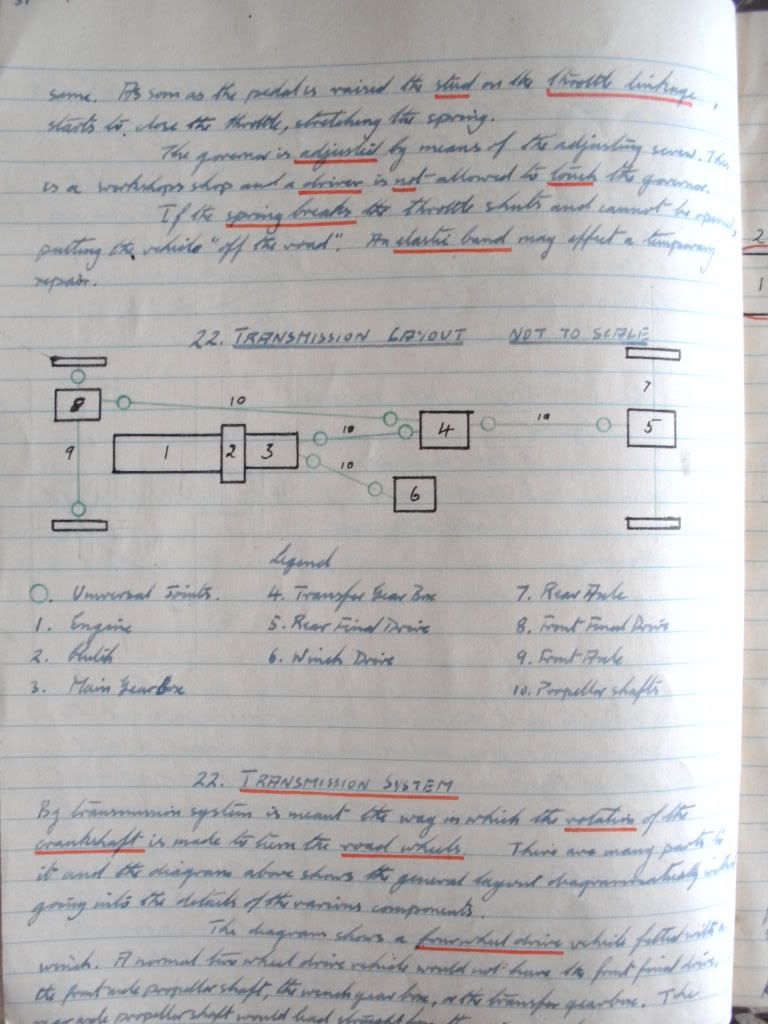 same. As soon as the pedal is raised the stud on the throttle linkage,
starts to close the throttle, stretching the spring.
The governor is adjusted by means of the adjusting screw. This
is a workshops shop and a driver is not allowed to touch the governor.
If the spring breaks the throttle shuts and cannot be opened,
putting the vehicle "off the road". An elastic band may effect a temporary
repair.
22. TRANSMISSION LAYOUT NOT TO SCALE
7
8
10
10
10
4
5
9
1
2
3
10
6
Legend
O. Universal Joints. 4. Transfer Gear Box 7. Rear Axle
1. Engine 5. Rear Final Drive 8. Front Final Drive
2. Clutch 6. Winch Drive 9. Front Axle
3. Main Gear Box 10. Propellor shafts
22. TRANSMISSION SYSTEM
By transmission system is meant the way in which the rotation of the
crankshaft is made to turn the road wheels. There are many parts to
it and the diagram above shows the general layout diagrammatically without
going into the details of the various components.
The diagram shows a four wheel drive vehicle fitted with a
winch. A normal two wheel drive vehicle would not have the front final drive,
the front axle propellor shaft, the winch gear box, or the transfer gearbox. The
rear axle propellor shaft would lead straight
2
1